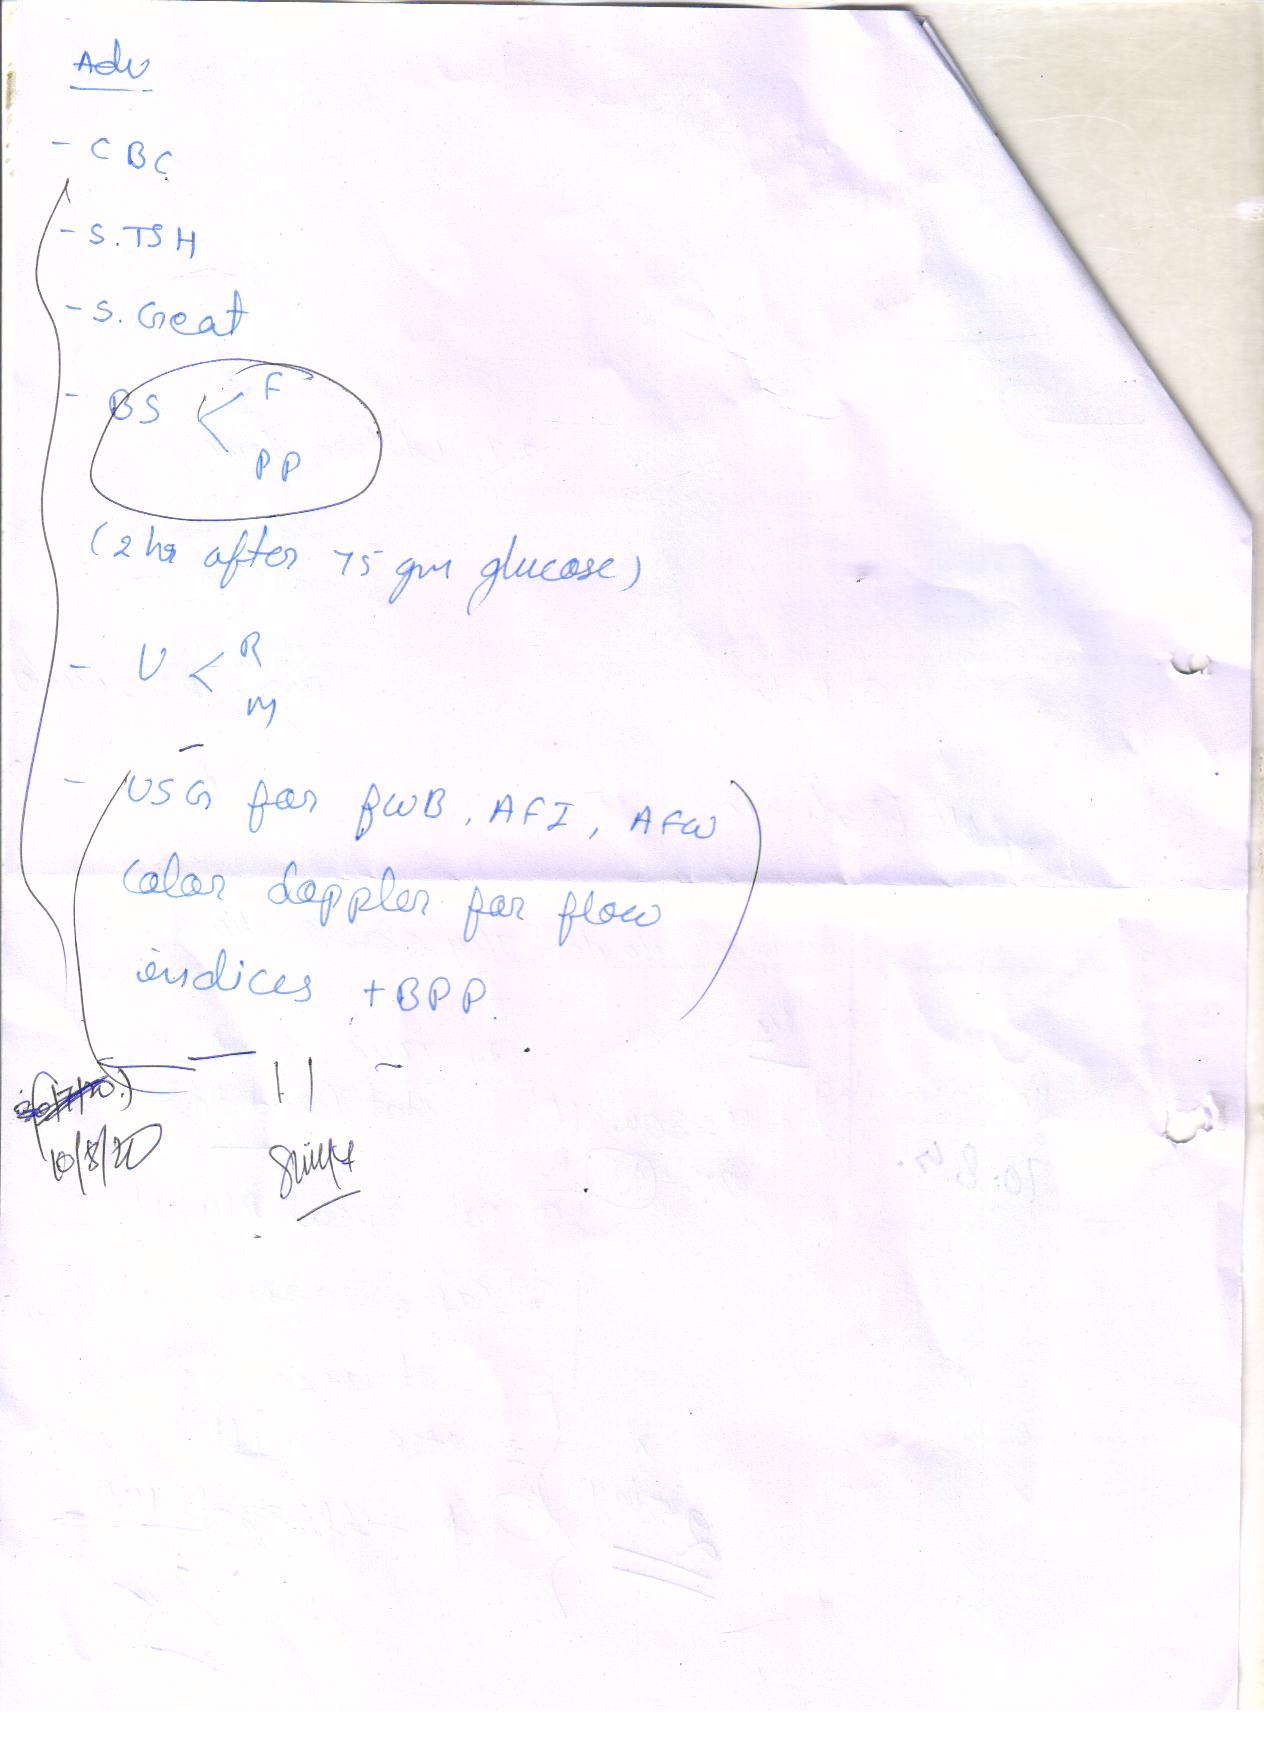 Adv
- CBC
- S.TSH
- S. Creat
- BS < F
PP
(2 hr after 75 gm glucose)
- U < R
M
- USG for fWB, AFI, AFW
Color doppler for flow
indices + BPP
10/8/20